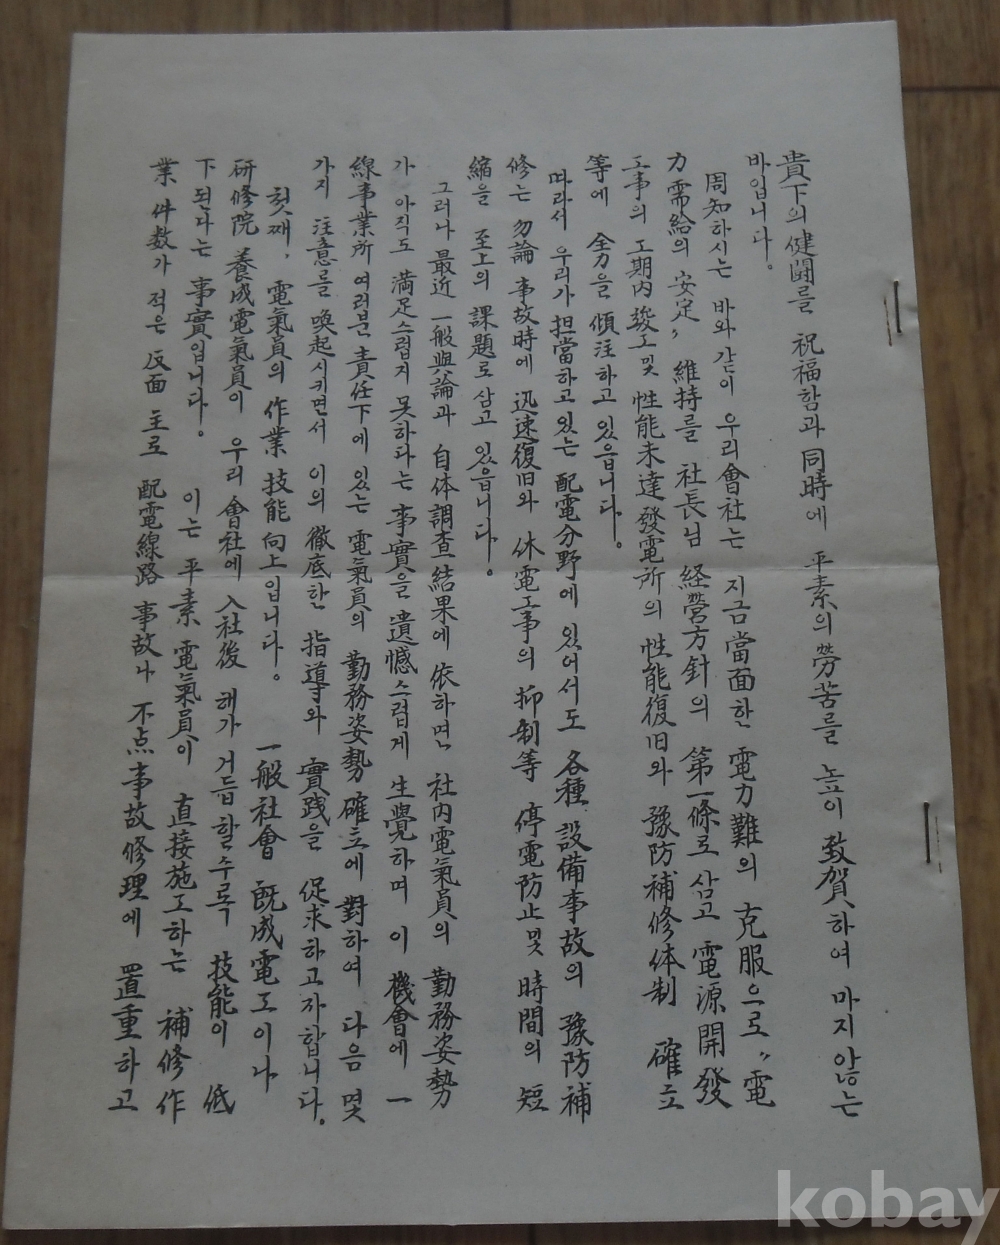 貴下의 健鬪를 祝福함과 同時에 平素의 勞苦를 높이 致賀하여 마지 않는
바입니다.
周知하시는 바와 같이 우리 會社는 지금 當面한 電力難의 克服으로 "電
力 需給의 安定" 維持를 社長님 経營方針의 第一條로 삼고 電源開發
工事의 工期内 竣工 및 性能未達發電所의 性能復旧와 豫防補修体制 確立
等에 全力을 傾注하고 있읍니다.
따라서 우리가 担當하고 있는 配電分野에 있어서도 各種 設備事故의 豫防補
修는 勿論 事故時에 迅速復旧와 休電工事의 抑制等 停電防止 및 時間의 短
縮을 至上의 課題로 삼고 있읍니다.
그러나 最近 一般輿論과 自体調査結果에 依하면 社内電氣員의 勤務姿勢
가 아직도 満足스럽지 못하다는 事實을 遺憾스럽게 生覺하며 이 機會에 一
線事業所 여러분 責任下에 있는 電氣員의 勤務姿勢 確立에 對하여 다음 몇
가지 注意를 喚起시키면서 이의 徹底한 指導와 實践을 促求하고자 합니다.
첫째, 電氣員의 作業 技能向上입니다. 一般社會 既成電工이나
研修院 養成電氣員이 우리 會社에 入社後 해가 거듭할수록 技能이 低
下된다는 事實입니다. 이는 平素 電氣員이 直接施工하는 補修作
業 件数가 적은 反面 主로 配電線路 事故나 不点事故修理에 置重하고
kobay